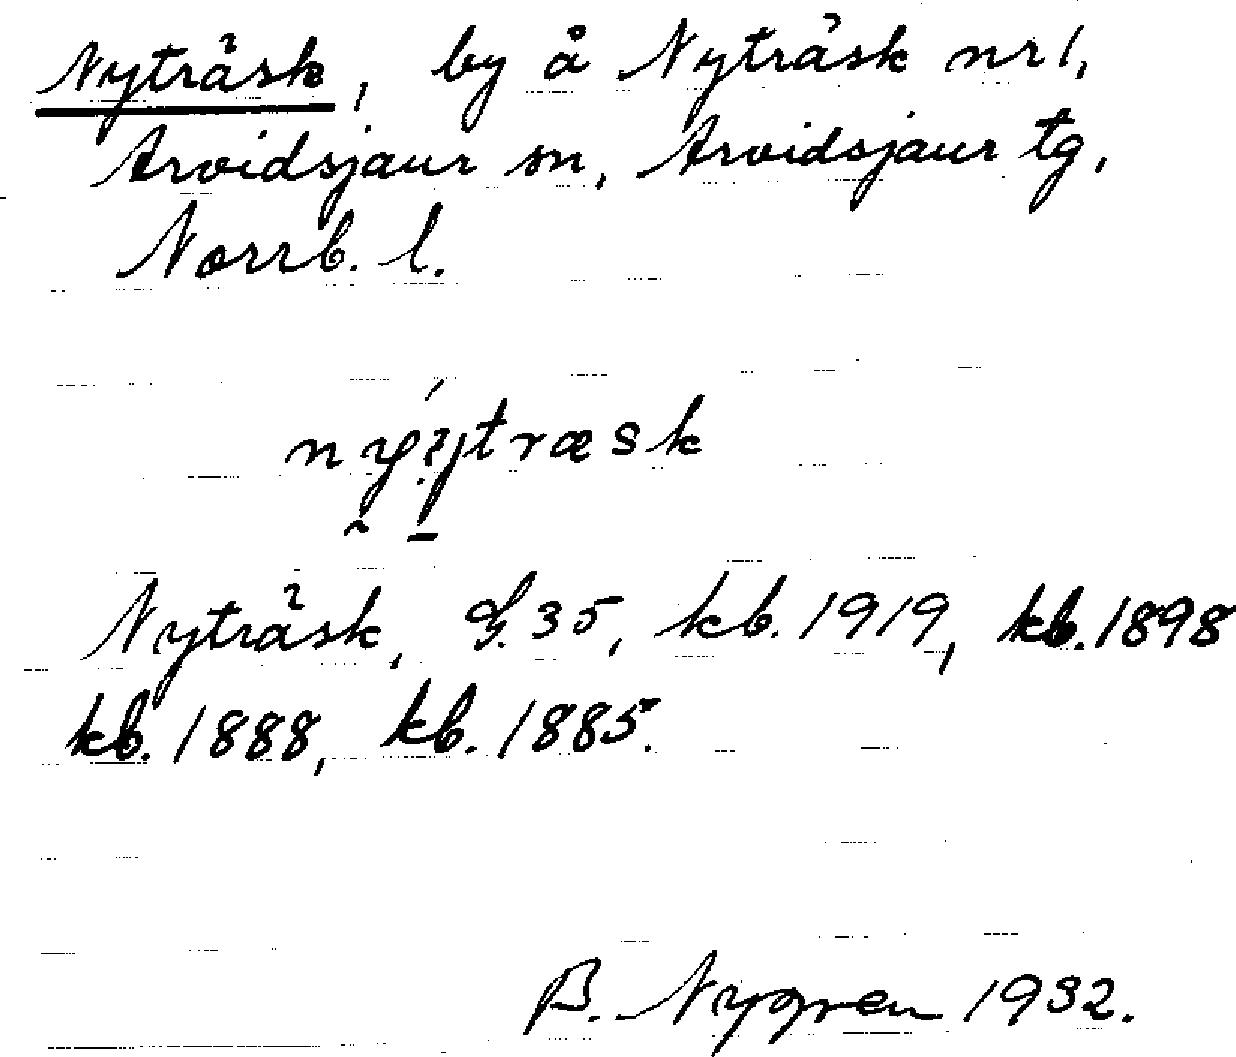 Nyträsk, by å Nyträsk nr 1,
Arvidsjaur sn, Arvidsjaur tg,
Norrb. l.
Nyträsk, G. 35, kb. 1919, kb. 1898
kb. 1888, kb. 1885.
B. Nygren 1932.